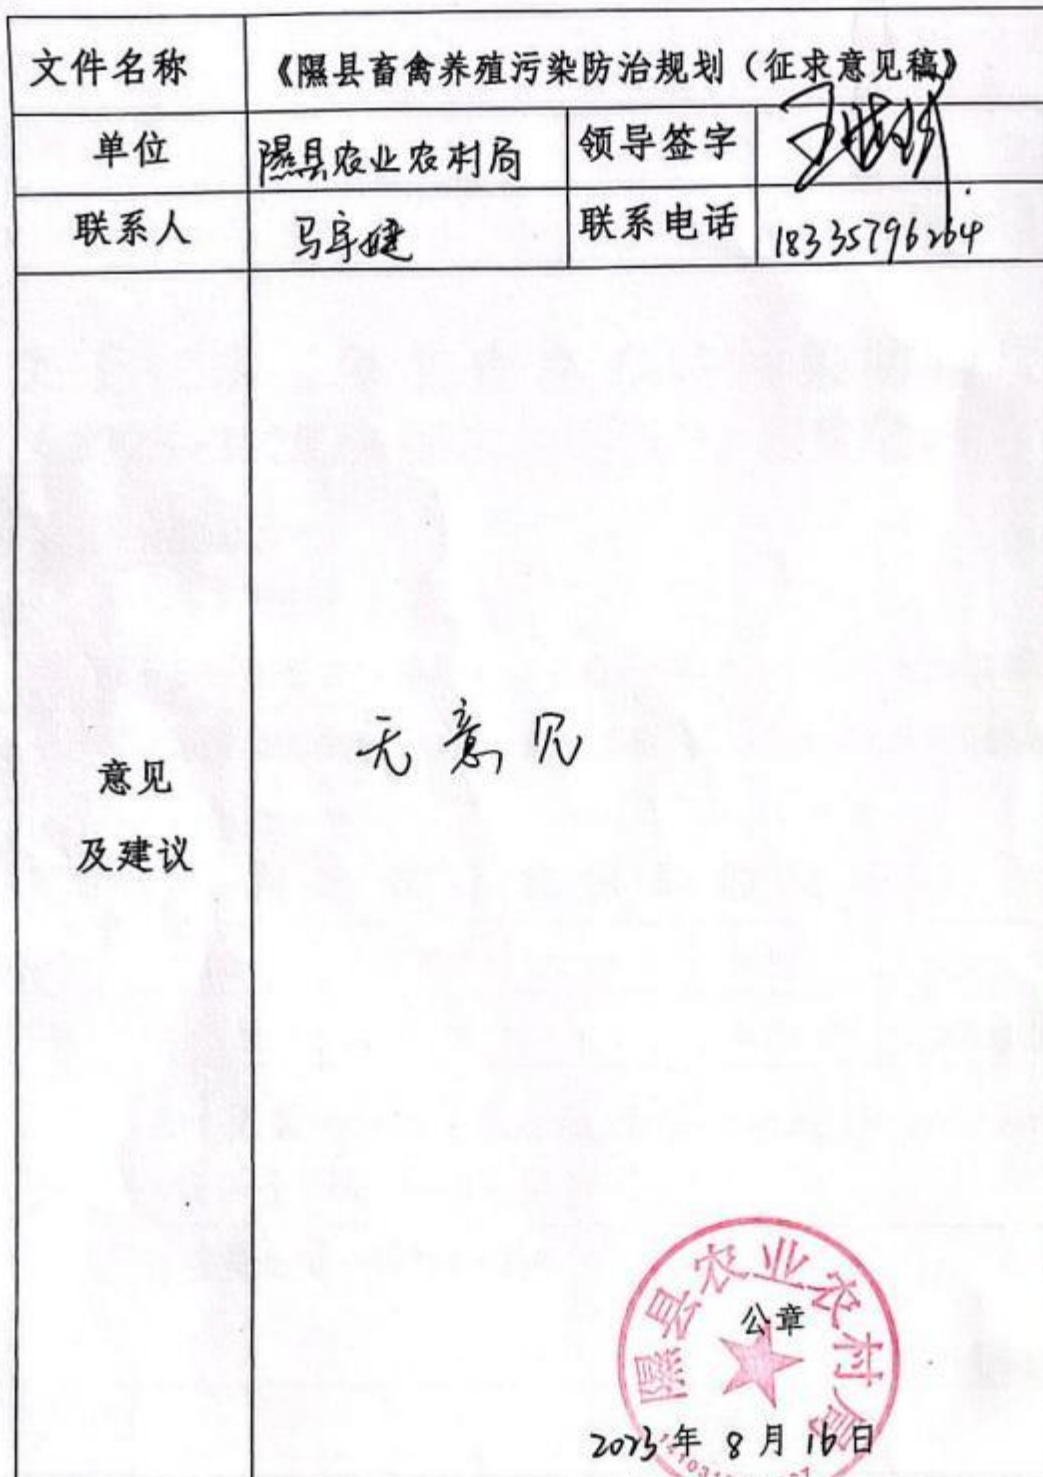 文件名称 《隰县畜禽养殖污染防治规划（征求意见稿》
单位 隰县农业农村局 领导签字
联系人 联系电话 18335796264
意见
及建议
无意见
隰县农业农村局
公章
2023年8月16日